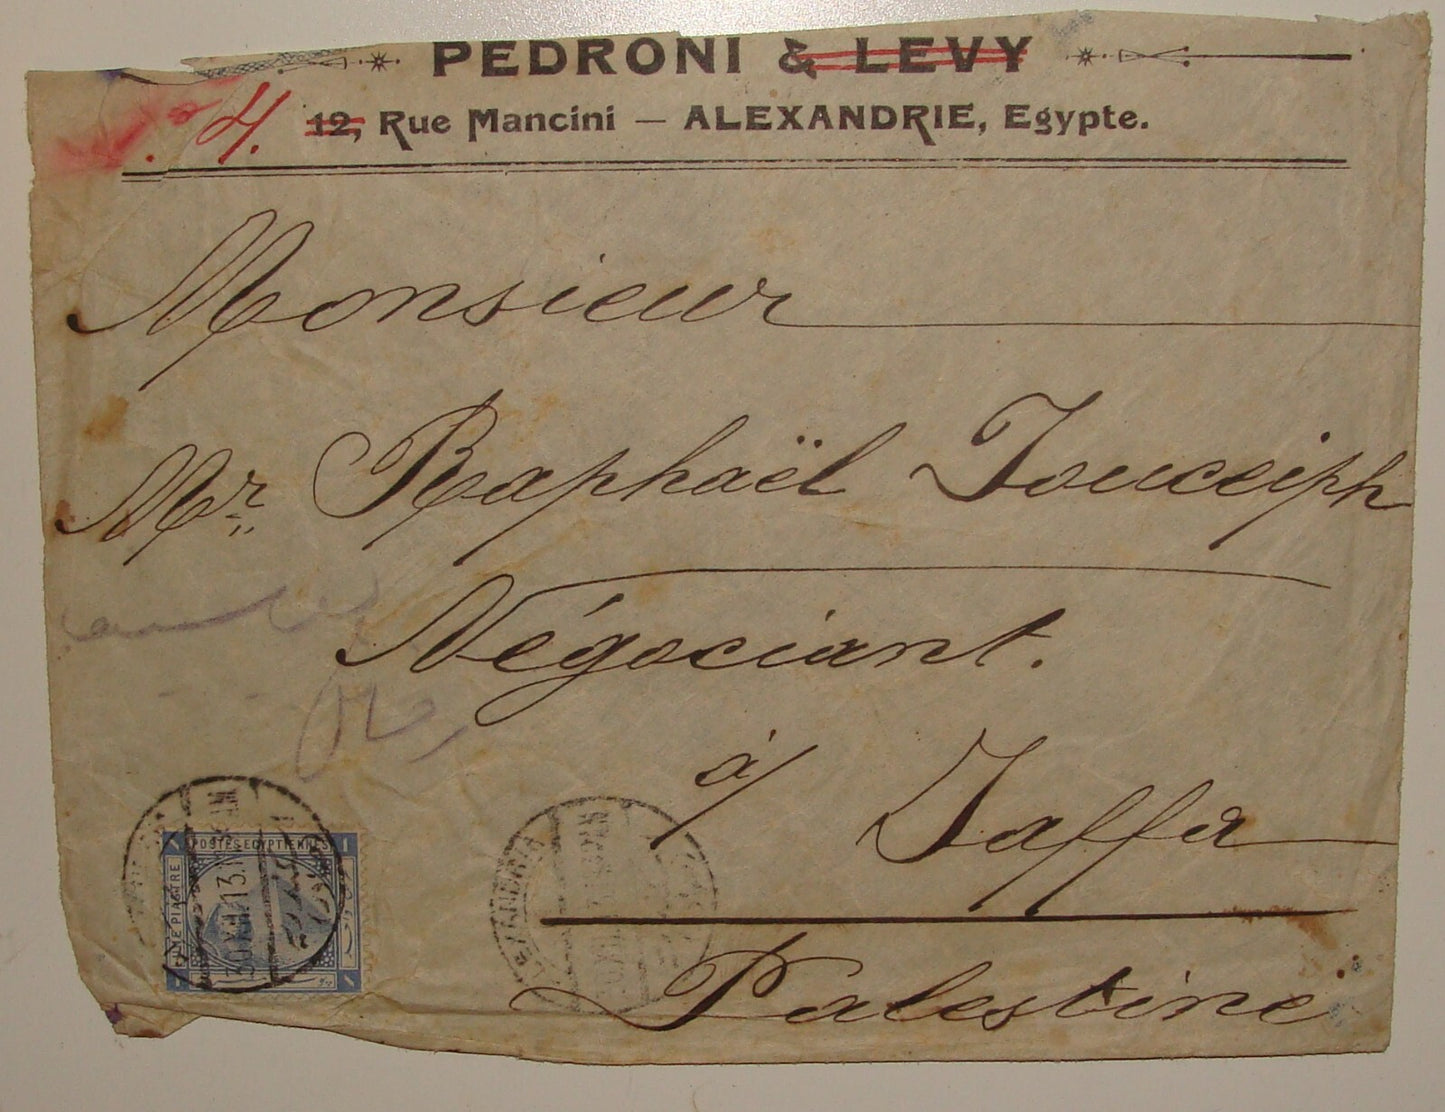 PEDRONI & LEVY
4.
12, Rue Mancini — ALEXANDRIE, Egypte.
Monsieur
Mr. Raphaël Jouceiph
Négociant.
à/ Jaffa
Palestine
POSTES EGYPTIENNES
UNE PIASTRE
30.XII.13.
AM
ALEXANDRIA